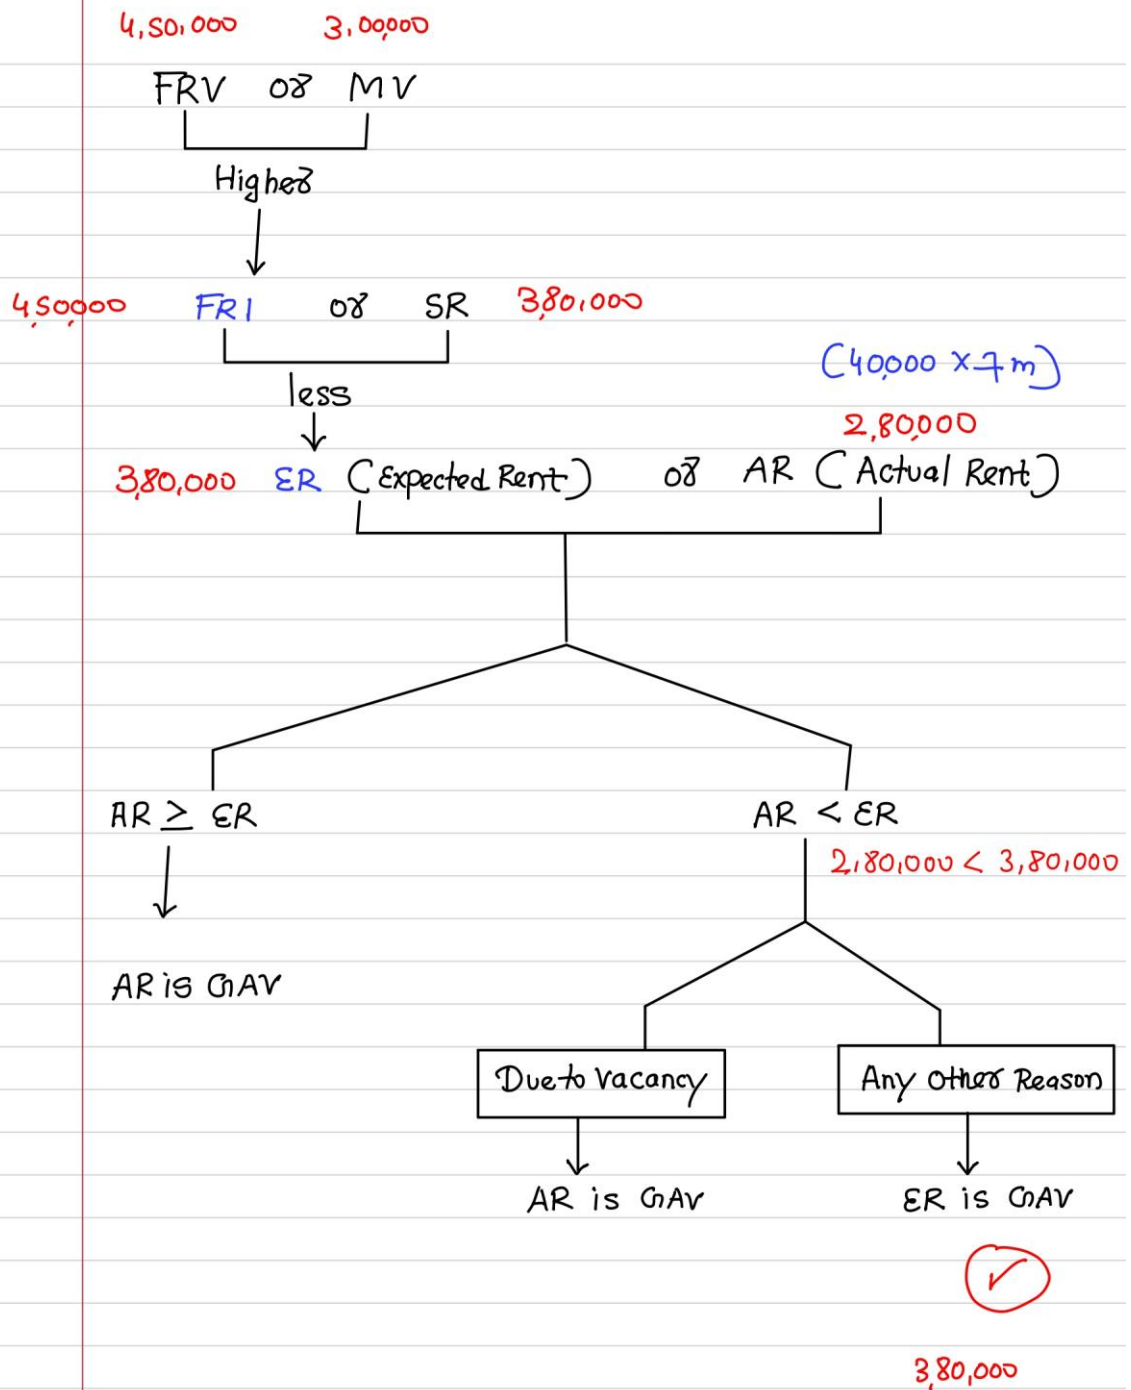 4,50,000 3,00,000
FRV or MV
Higher
4,50,000 FR1 or SR 3,80,000
(40,000 x 7 m)
less
2,80,000
3,80,000 ER (Expected Rent) or AR (Actual Rent)
AR ≥ ER AR < ER
2,80,000 < 3,80,000
AR is GAV
Due to Vacancy Any other Reason
AR is GAV ER is GAV
✓
3,80,000